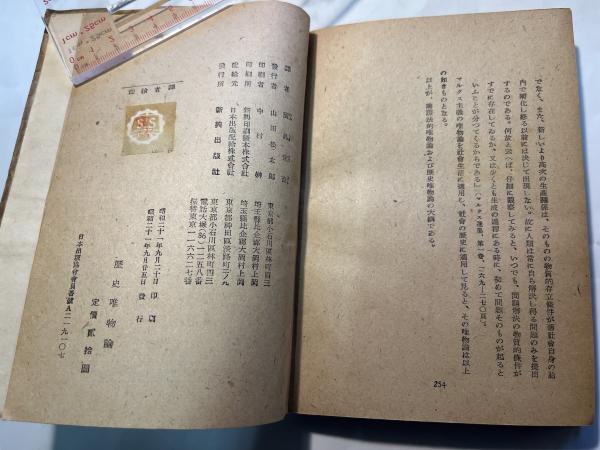 でなく、また、新しいより高次の生產關係は、そのものの物質的存立條件が舊社會自身の胎
內で孵化し終る以前には決して出現しない。故に人類は常に自ら解決し得る問題のみを提出
するのである。何故と云へば、仔細に觀察してみると、いつでも、問題解決の物質的條件が
すでに存在してゐるか、又は少くとも生成の過程にある時に、初めて問題そのものが起ると
いふことが分つてくるからである』(マルクス選集、第一卷、二六九—二七〇頁)。
マルクス主義の唯物論を社會生活に適用し、社會の歷史に適用して見ると、その唯物論は以上
の如きものとなる。
以上が、辯證法的唯物論および歷史唯物論の大綱である。
254
譯者
發行者 山田
印刷者 中村
印刷所 新興印刷製本株式會社
配給元 日本出版配給株式會社
發行所 新興出版社
東京都小石川區林町四三
埼玉縣比企郡大岡村上岡
埼玉縣比企郡大岡村上岡
東京都神田區淡路町二ノ九
東京都小石川區林町四三
電話大塚(86)一二五八番
振替東京一一六六二七番
譯者檢印
昭和二十一年九月二十日印刷
昭和二十一年九月廿五日發行
歷史唯物論
定價貳拾圓
日本出版協會會員番號A二一九一〇七